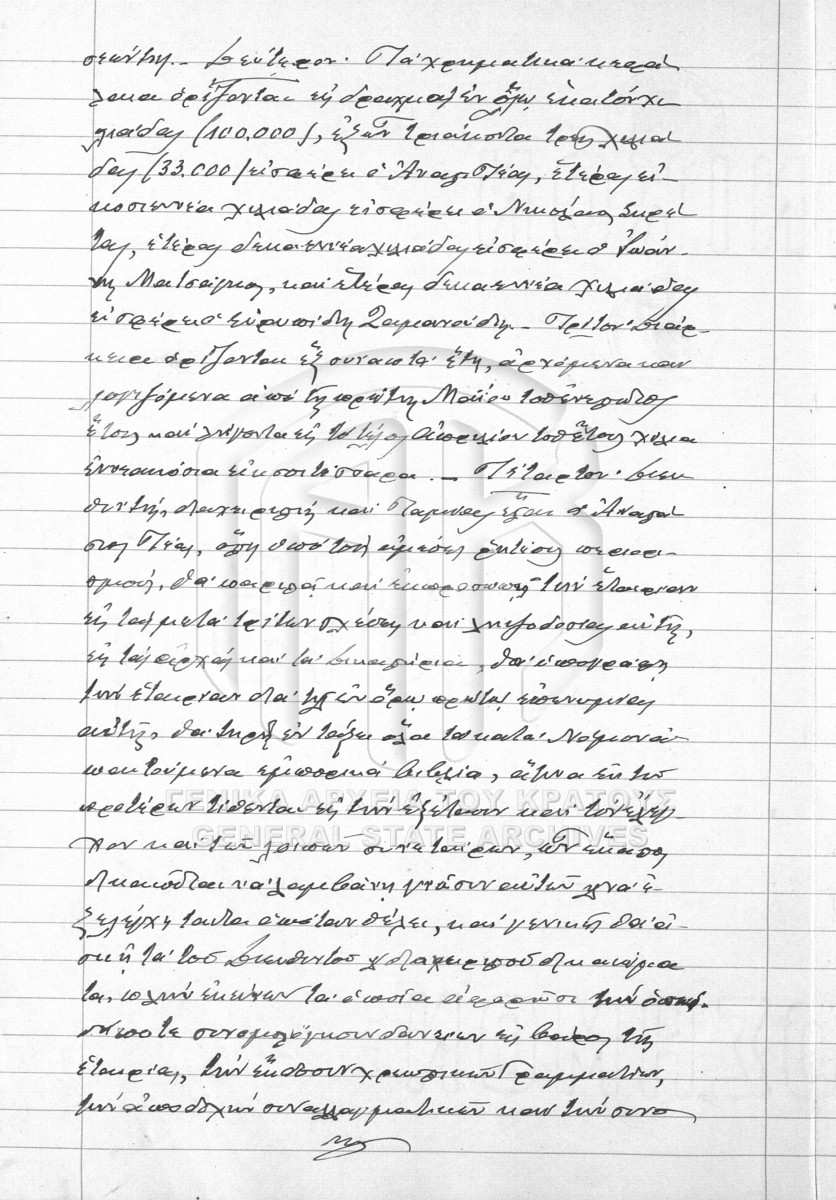 σεώντη.– Δεύτερον· Τὰ χρηματικὰ κεφά
λαια ὁρίζονται εἰς δραχμὰς ἐν ὅλῳ ἑκατὸν χι
λιάδας (100.000), ἐξ ὧν τριάκοντα τρεῖς χιλιά
δας (33.000) εἰσφέρει ὁ Ἀναστ. Τέας, ἑτέρας εἰ-
κοσιεννέα χιλιάδας εἰσφέρει ὁ Νικόλαος Σκρέ
τας, ἑτέρας δεκαεννέα χιλιάδας εἰσφέρει ὁ Ἰωάν-
νης Ματσάγκος, καὶ ἑτέρας δεκαεννέα χιλιάδας
εἰσφέρει ὁ Εὐρυπίδης Σαμανούδης.– Τρίτον· Διάρ-
κεια ὁρίζονται ἓξ συναπτὰ ἔτη, ἀρχόμενα καὶ
λογιζόμενα ἀπὸ τῆς πρώτης Μαΐου τοῦ ἐνεστῶτος
ἔτους καὶ λήγοντα εἰς τὸ τέλος Ἀπριλίου τοῦ ἔτους χίλια
ἐννεακόσια εἰκοσιτέσσαρα.– Τέταρτον· Διευ
θυντής, διαχειριστὴς καὶ Ταμίας ἔσται ὁ Ἀναστά
σιος Τέας, ὅστις ὑπὸ τοὺς ἀμέσως ῥητέους περιορι-
σμούς, θὰ παριστᾷ καὶ ἐκπροσωπῇ τὴν ἑταιρίαν
εἰς τὰς μετὰ τρίτων σχέσεις καὶ ληψοδοσίας αὐτῆς,
εἰς τὰς ἀρχὰς καὶ τὰ Δικαστήρια, θὰ ὑπογράφῃ
τὴν ἑταιρίαν διὰ τῆς ἐν ὅρῳ πρώτῳ ἐπωνυμίας
αὐτῆς, θὰ τηρῇ ἐν τάξει ὅλα τὰ κατὰ Νόμον ἀ
παιτούμενα ἐμπορικὰ βιβλία, ἅτινα ἐκ τῶν
προτέρων τίθενται εἰς τὴν ἐξέτασιν καὶ τὸν ἔλεγ-
χον καὶ τῶν λοιπῶν συνεταίρων, ὧν ἕκαστος
δικαιοῦται νὰ λαμβάνῃ γνῶσιν αὐτῶν καὶ νὰ ἐ-
ξελέγχῃ ταῦτα ὁπόταν θέλει, καὶ γενικῶς θὰ ἀ-
σκῇ τὰ τοῦ Διευθυντοῦ καὶ διαχειριστοῦ δικαιώμα
τα, πλὴν ἐκείνων τὰ ὁποῖα ἀφορῶσι τὴν ὁπωσ-
δήποτε συνομολόγησιν δανείων εἰς βάρος τῆς
ἑταιρίας, τὴν ἔκδοσιν χρεωστικῶν Γραμματίων,
τὴν ἀποδοχὴν συναλλαγματικῶν καὶ τὴν συνο
ΓΕΝΙΚΑ ΑΡΧΕΙΑ ΤΟΥ ΚΡΑΤΟΥΣ
GENERAL STATE ARCHIVES